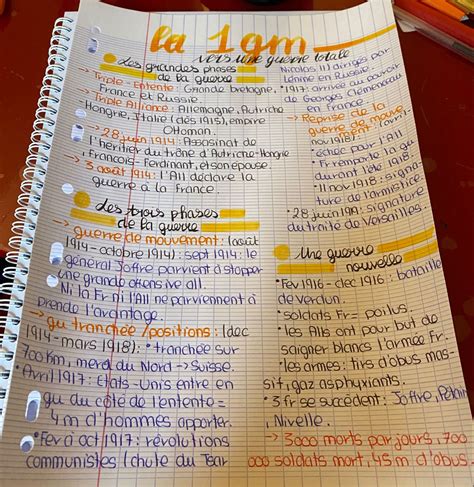 la 1gm
vers une guerre totale
les grandes phases
de la guerre
→ Triple-Entente: Grande bretagne,
France et Russie
→ Triple Alliance: Allemagne, Autriche
-Hongrie, Italie (dès 1915), empire
Ottoman.
→ 28 juin 1914: Assassinat de
l'héritier du trône d'Autriche-Hongrie
, François-Ferdinant, et son épouse
→ 3 août 1914: l'All déclare la
guerre à la France.
les trois phases
de la guerre
→ guerre de mouvement: (août
1914-octobre 1914): sept 1914: le
général Joffre parvient à stopper
une grande offensive all.
Ni la Fr ni l'All ne parviennent à
prendre l'avantage.
→ gu tranchée/positions: (dec
1914-mars 1918): • tranchée sur
700km, mer du Nord → Suisse.
• Avril 1917: Etats-Unis entre en
gu du côté de l'entente =
4 m d'hommes apporter.
• Fev à oct 1917: révolutions
communistes (chute du Tsar
Nicolas II) dirigés par
Lénine en Russie.
• 1917: arrivée au pouvoir
de Georges Clémenceau
en France.
→ Reprise de la
guerre de mouve
ment (avril-
nov 1918):
• échec pour l'All
Fr remporte la gu
durant l'été 1918.
• 11 nov 1918: signa-
ture de l'armistice
• 28 juin 1919: signature
du traité de Versailles.
Une guerre
nouvelle
• Fev 1916-dec 1916: bataille
de Verdun.
• soldats Fr = poilus.
• les Alls ont pour but de
saigner blancs l'armée Fr.
• les armes: tirs d'obus mas-
sif, gaz asphyxiants.
• 3 fr se succèdent: Joffre, Pétain
, Nivelle.
→ 3000 morts par jours, 700
000 soldats mort, 45 m d'obus.